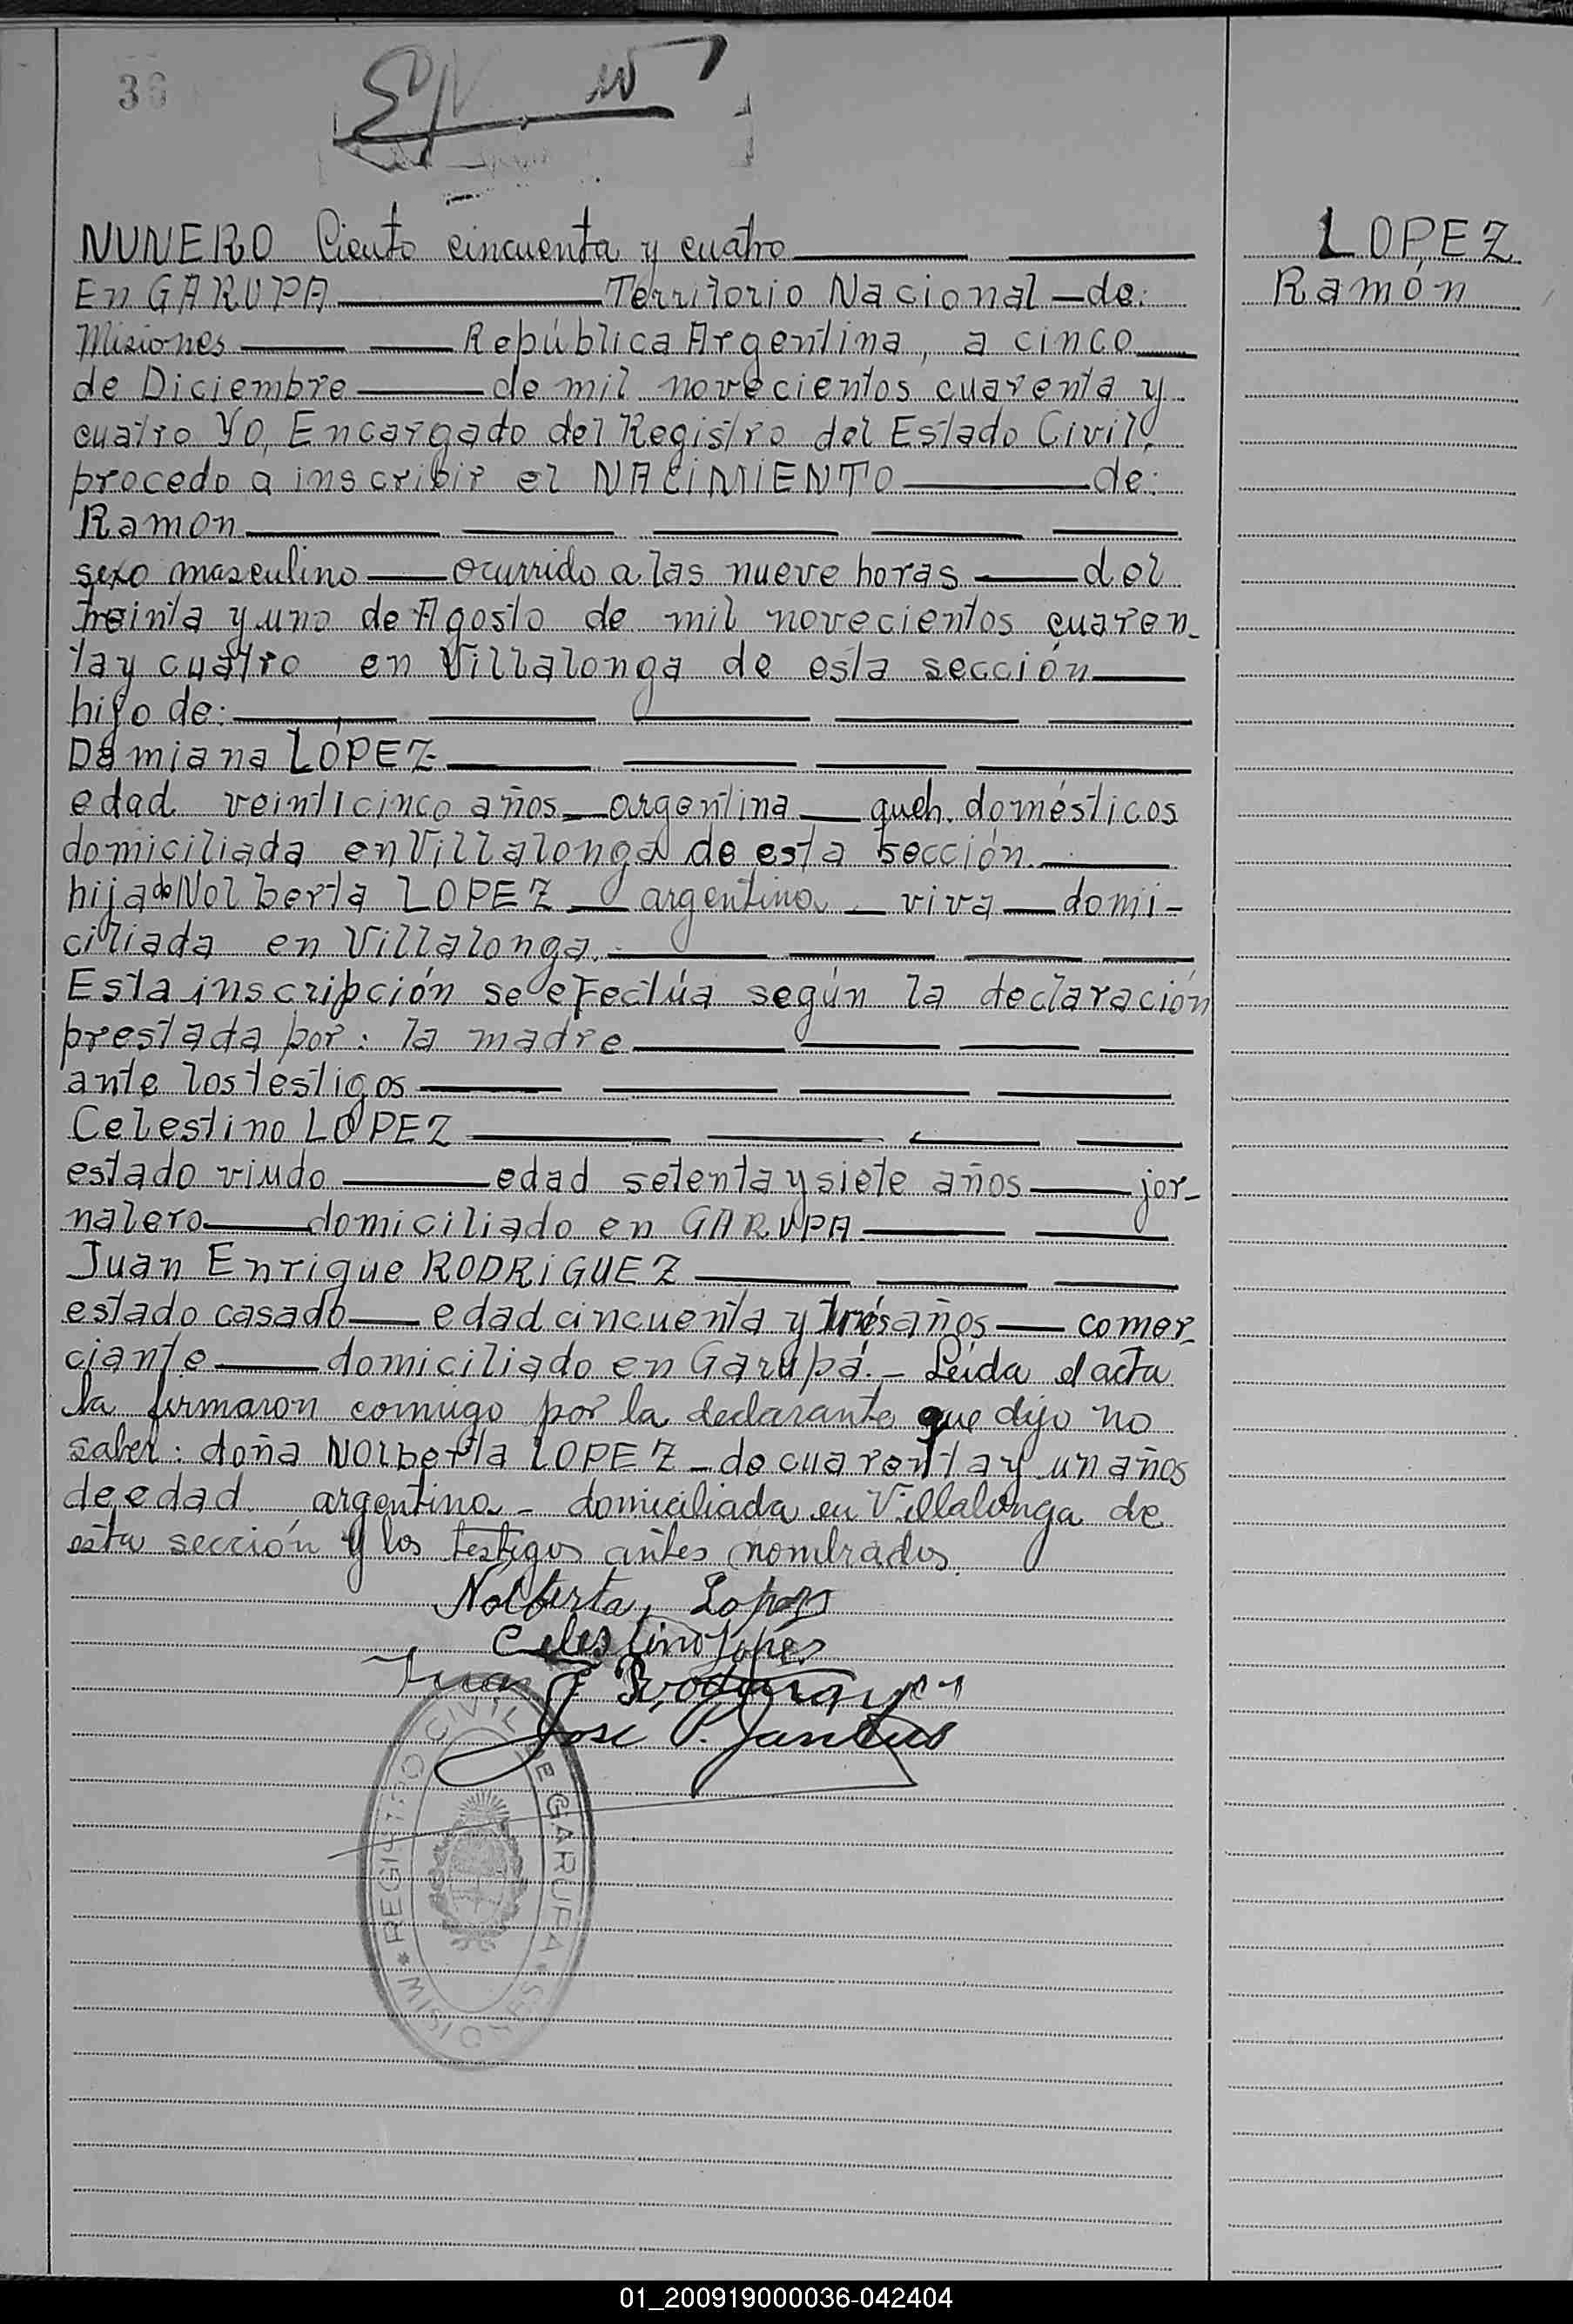 36
NUNERO Ciento cincuenta y cuatro
LOPEZ
Ramón
En GARUPA Territorio Nacional de:
Misiones República Argentina, a cinco
de Diciembre de mil novecientos cuarenta y
cuatro Yo, Encargado del Registro del Estado Civil,
procedo a inscribir el NACIMIENTO de:
Ramon
sexo masculino ocurrido a las nueve horas del
treinta y uno de Agosto de mil novecientos cuaren-
ta y cuatro en Villalonga de esta sección
hijo de:
Damiana LÓPEZ
edad veinticinco años argentina queh. domésticos
domiciliada en Villalonga de esta sección.
hija de Nolberta LOPEZ argentina viva domi-
ciliada en Villalonga.
Esta inscripción se efectúa según la declaración
prestada por: la madre
ante los testigos
Celestino LOPEZ
estado viudo edad setenta y siete años jor-
nalero domiciliado en GARUPA
Juan Enrique RODRIGUEZ
estado casado edad cincuenta y trés años comer-
ciante domiciliado en Garupá.- Leida el acta
la firmaron conmigo por la declarante que dijo no
saber: doña NOlberta LOPEZ - de cuarenta y un años
de edad argentina - domiciliada en Villalonga de
esta sección y los testigos antes nombrados.
Nolberta, Lopez
Celestino Lopes
Juan E Rodriguez
José P.
REGISTRO CIVIL DE GARUPA * MISIONES *
01_200919000036-042404